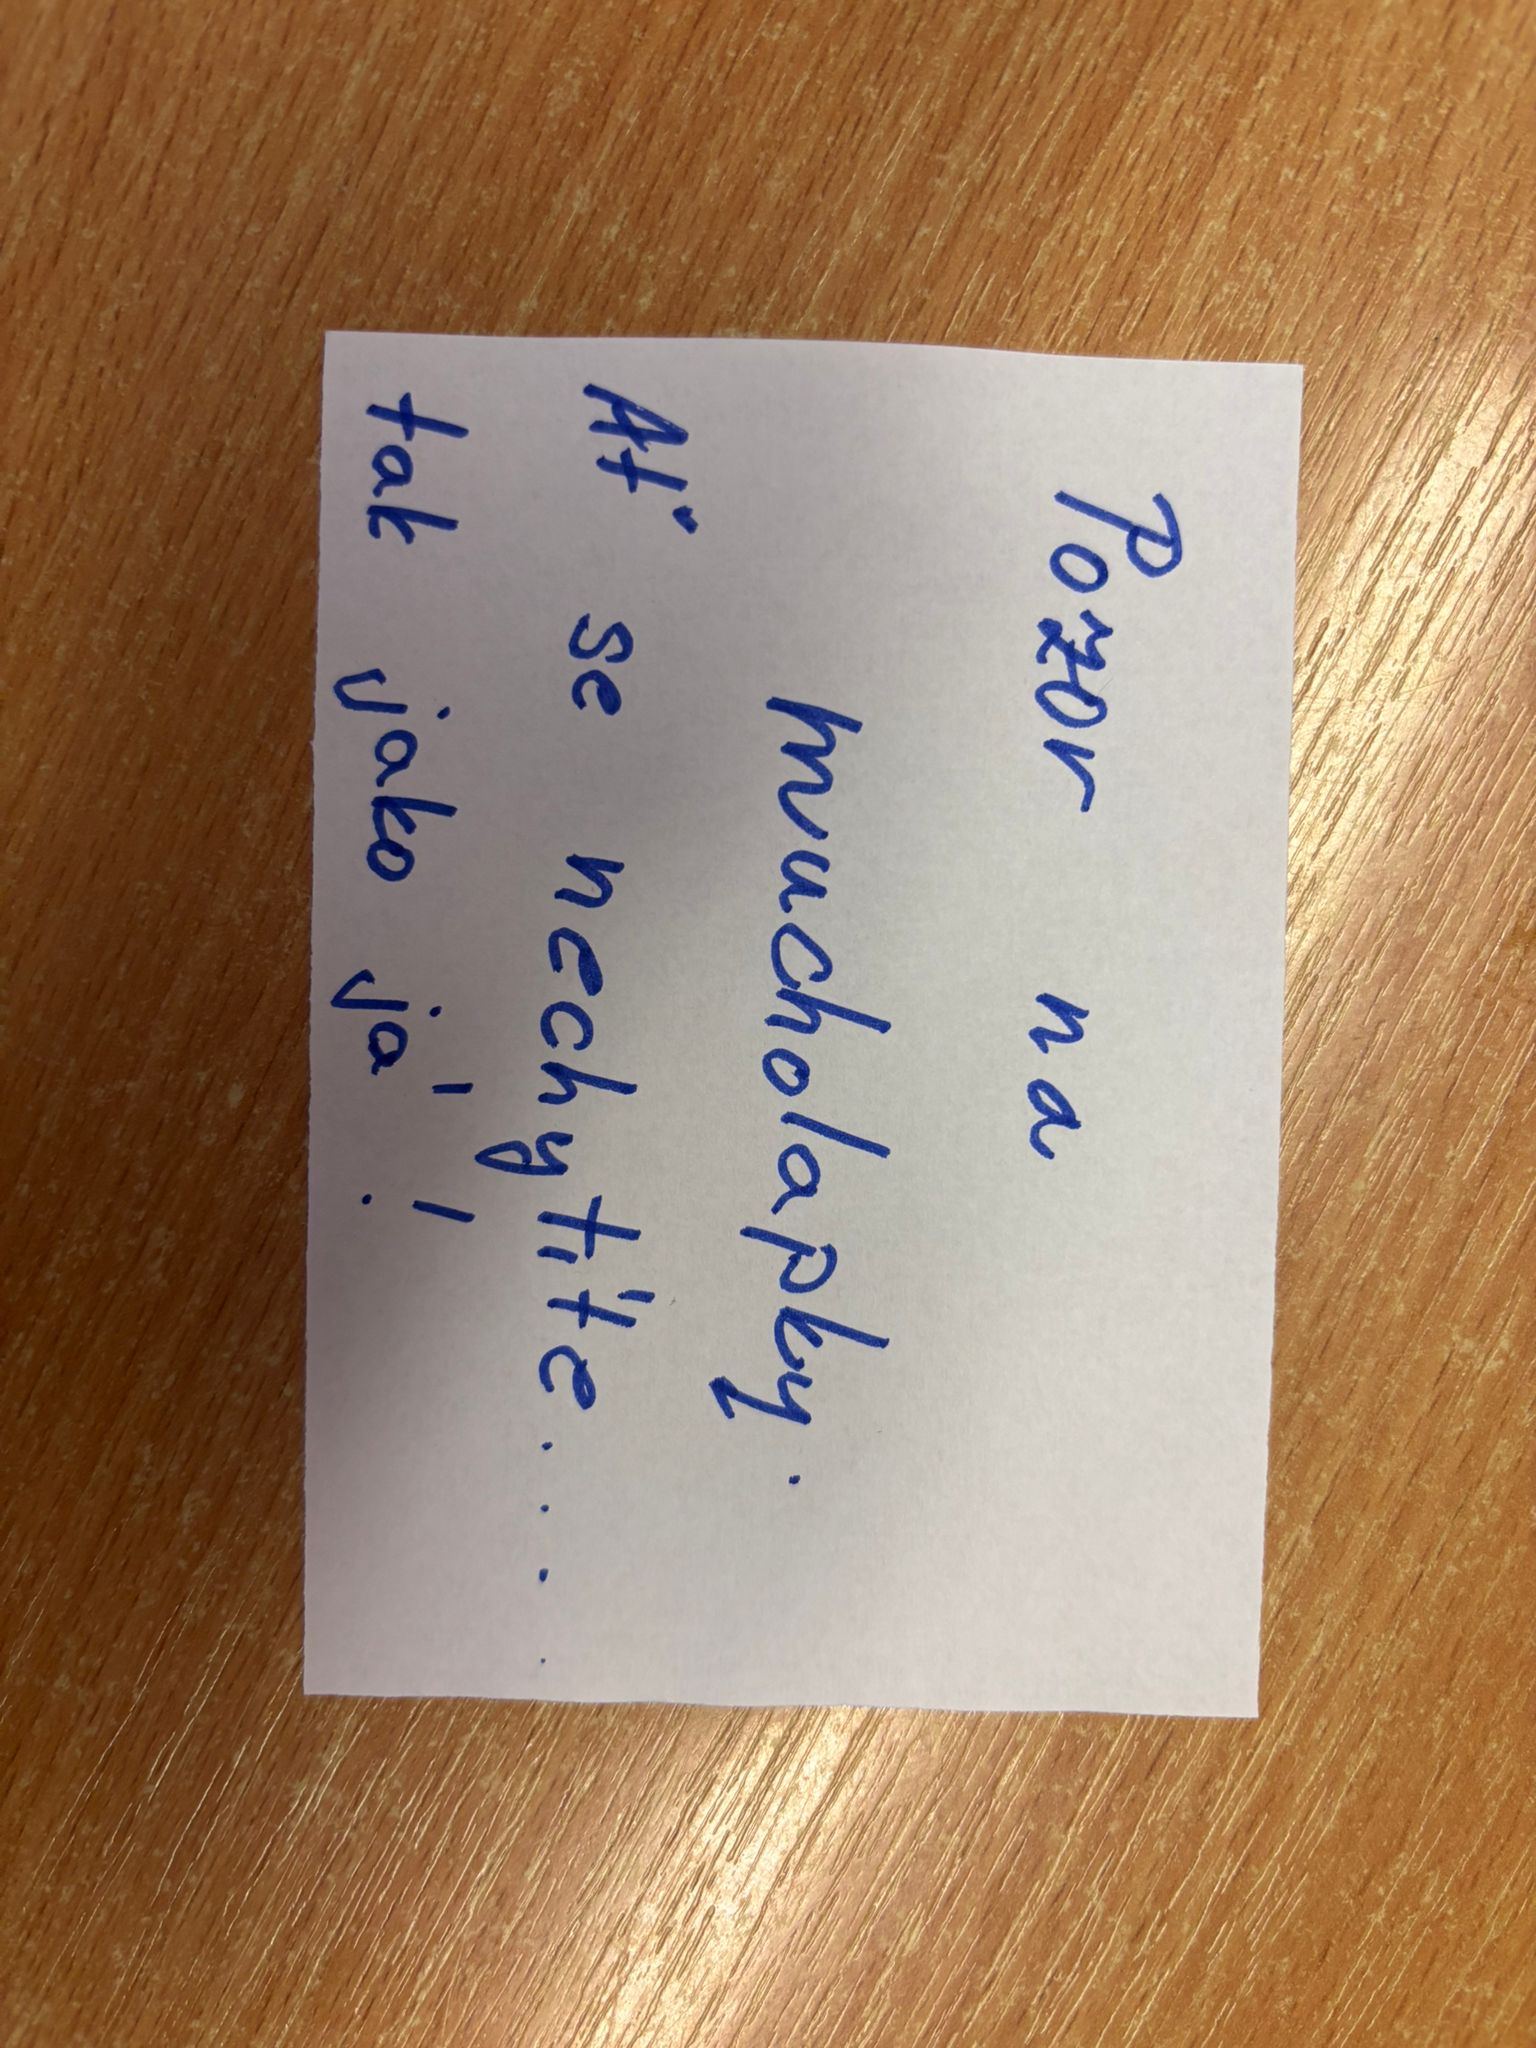 Pozor na
mucholapky.
Ať se nechytíte....
tak jako já!